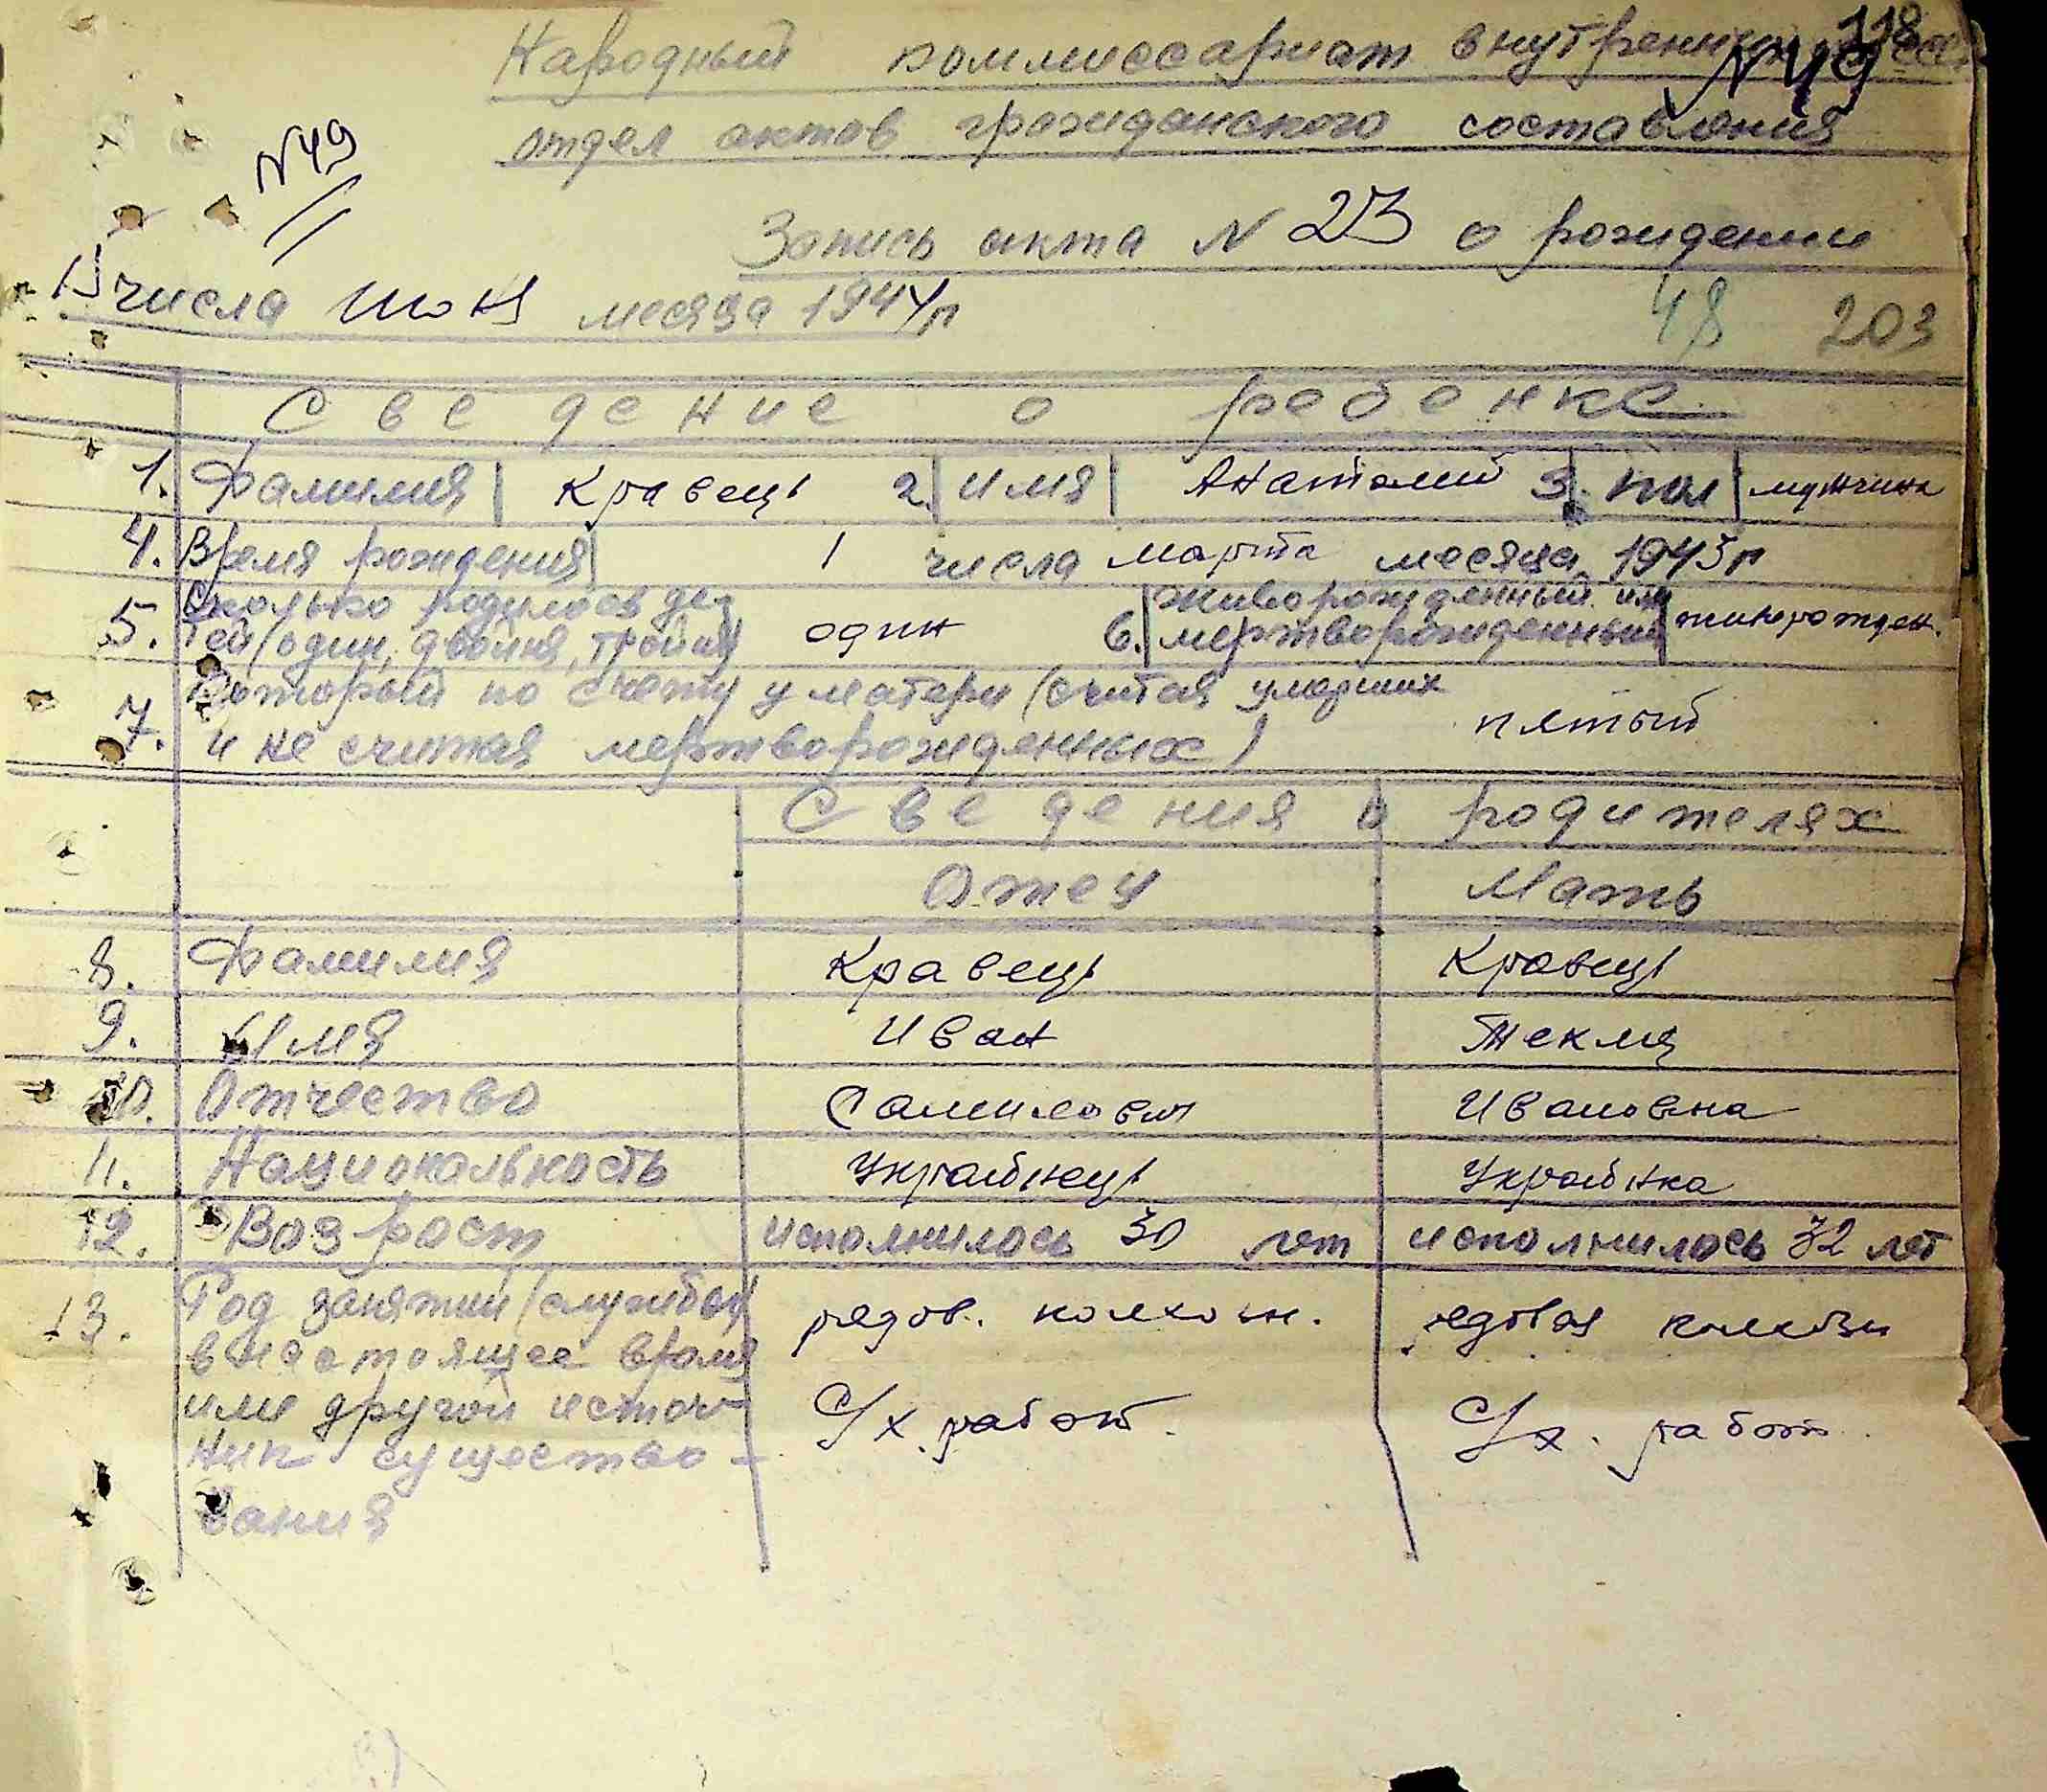 118
Народный коммиссариат внутренних
N 49
отдел актов гражданского составления
N 49
Запись акта N 23 о рождении
15 числа июня месяца 1944 г
48 203
Сведение о ребенке
1. Фамилия Кравець 2. имя Анатолий 3. пол мужчина
4. Время рождения 1 числа марта месяца 1943 г
5. Сколько родилось де-
тей (один, двойня, тройня) один
6. живорожденный или
мертворожденный живорожден.
7. Который по счету у матери (считая умерших
и не считая мертворожденных) пятый
Сведения о родителях
Отец Мать
8. Фамилия Кравець Кравець
9. Имя Иван Текля
10. Отчество Самилович Ивановна
11. Национальность Украінець Украінка
12. Возраст исполнилось 30 лет исполнилось 32 лет
13. Род занятий (службы) рядов. колхозн. рядовая колхозн
в настоящее время
или другой источ- С/х. работ. С/х. работ.
ник существо-
вания